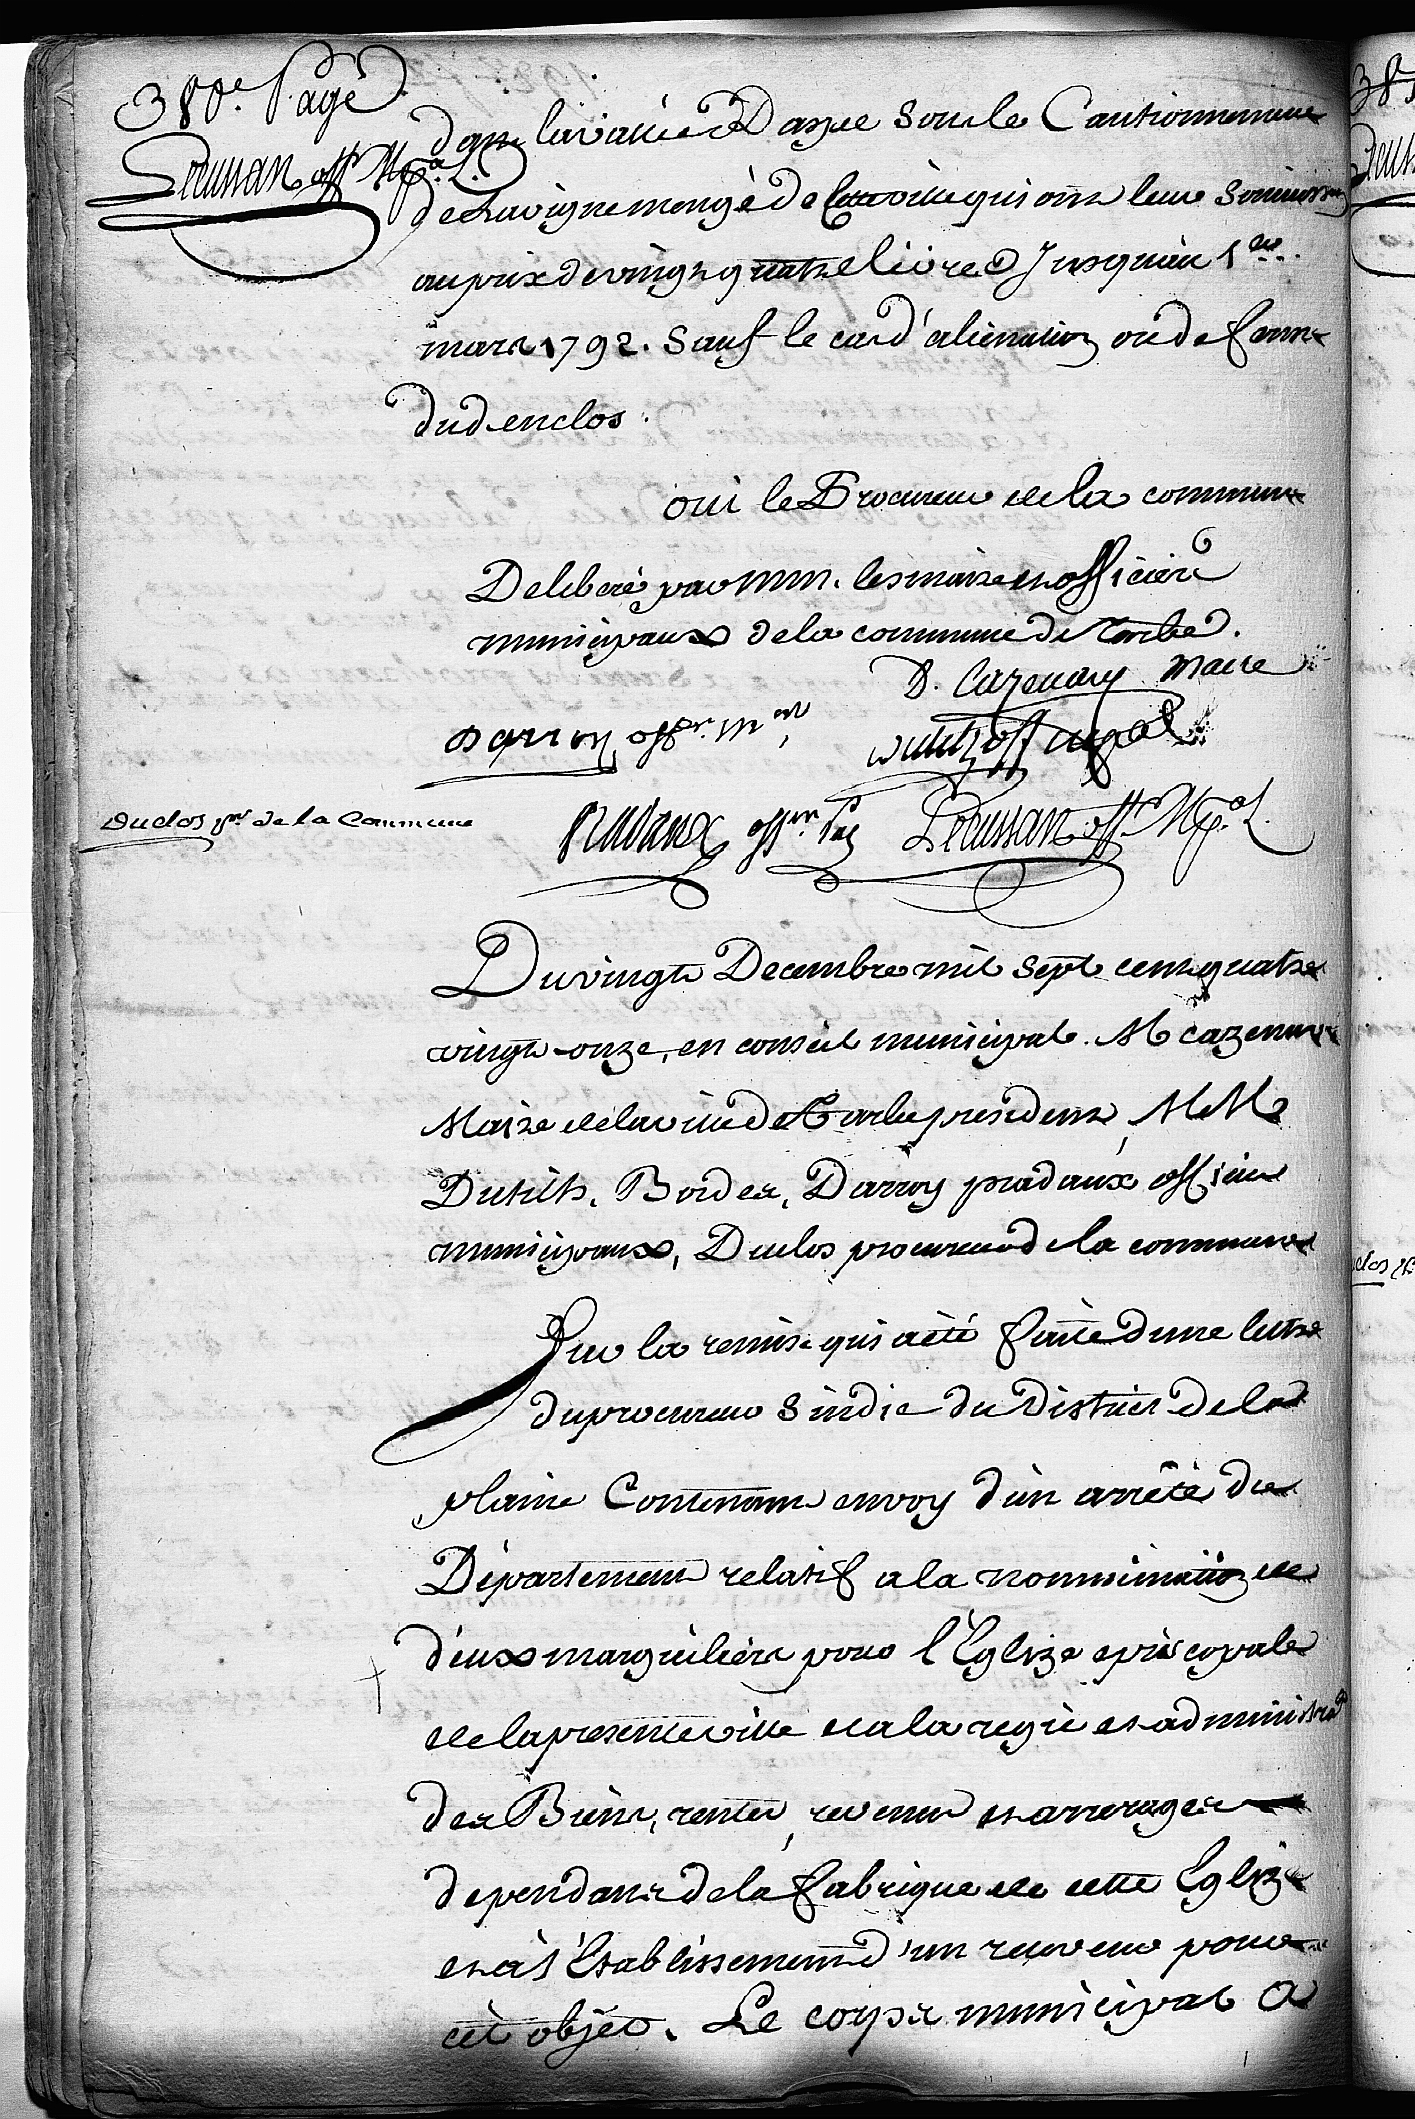 380e. Page
Lécussan off. Mpal.
dans lavallée Daspe sous le Cautionnement
de Lavigne mongé de la ville qui ont leur soumission
au prix de vingt quatre livres Jusqu'au 1er.
mars 1792. Sauf le cas d'alienation ou de ferme
dud enclos.
oui le Procureur de la commune
Deliberé par MM. les maire et officiers
municipaux de la commune de Tarbes.
D. Cazenave Maire
Darroy offer. Mal
Dutilh off mpal
Duclos pr. de la Commune
Pradaux offer Pal Lécussan off. Mpal.
Du vingt Decembre mil sept cent quatre
vingt-onze, en conseil municipal. M cazenave
Maire de la ville de Tarbe president, MM
Dutilh, Bordes, Darroy pradaux officiers
municipaux, Duclos procureur de la commune
Sur la remise qui a été faite d'une lettre
du procureur Sindic du District de la
plaine Contenant envoy d'un arrêté du
Département relatif a la nommination de
deux marguiliers pour l'Eglize episcopale
de la presente ville et a la regie et administraon
des Biens, rentes, revenus et arrerages
dependans de la fabrique de cette Eglize
et à l'Etablissement d'un receveur pour
cet objet. Le corps municipal a